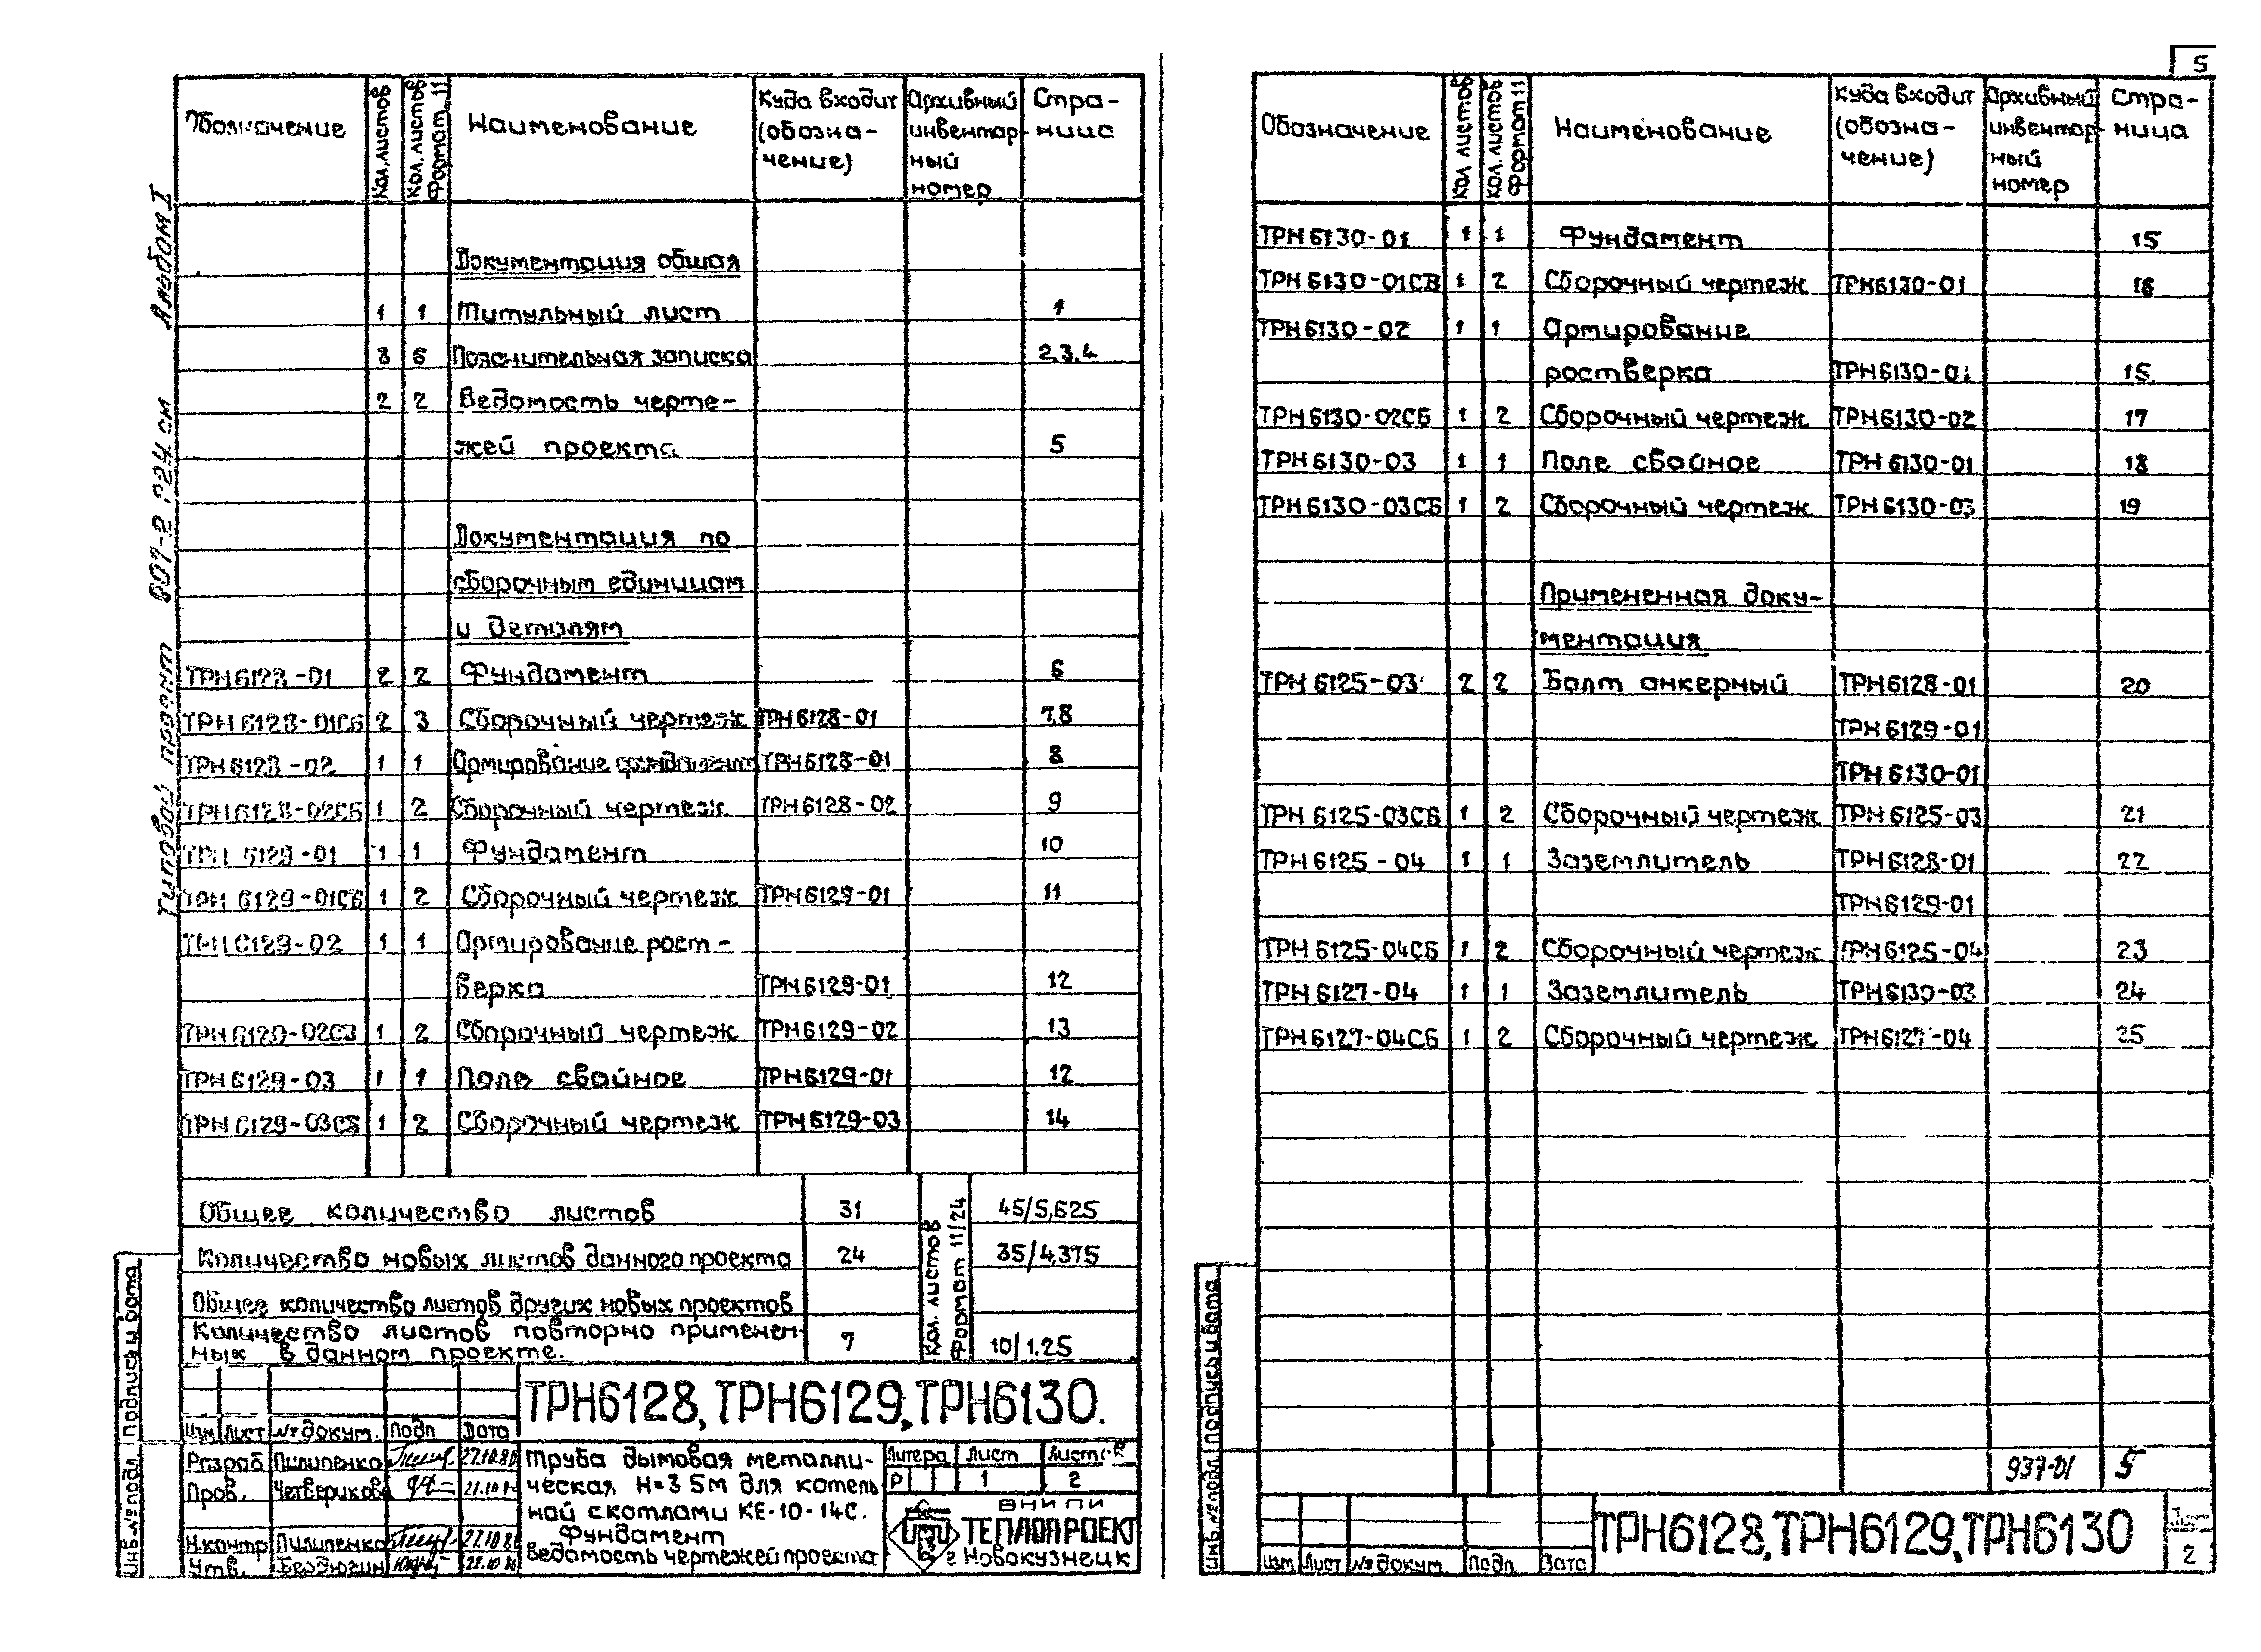 5
Типовой проект 907-2 Альбом I
Обозначение Кол. листов Кол. листов формат 11 Наименование Куда входит (обозна-чение) Архивный инвентар-ный номер Стра-ница
Документация общая
1 1 Титульный лист 1
3 6 Пояснительная записка 2.3.4
2 2 Ведомость черте-
жей проекта 5
Документация по
сборочным единицам
и деталям
ТРН6128-01 2 2 Фундамент 6
ТРН6128-01СБ 2 3 Сборочный чертеж ТРН6128-01 7,8
ТРН6128-02 1 1 Армирование фундамента ТРН6128-01 8
ТРН6128-02СБ 1 2 Сборочный чертеж ТРН6128-02 9
ТРН 6129-01 1 1 Фундамент 10
ТРН 6129-01СБ 1 2 Сборочный чертеж ТРН6129-01 11
ТРН6129-02 1 1 Армирование рост-
верка ТРН6129-01 12
ТРН6129-02СБ 1 2 Сборочный чертеж ТРН6129-02 13
ТРН6129-03 1 1 Поле свайное ТРН6129-01 12
ТРН6129-03СБ 1 2 Сборочный чертеж ТРН6129-03 14
Общее количество листов 31 45/5,625
Количество новых листов данного проекта 24 35/4,375
Общее количество листов других новых проектов
Количество листов повторно применен-
ных в данном проекте. 7 10/1.25
Кол. листов формат 11/24
ТРН6128, ТРН6129, ТРН6130.
Изм Лист № докум. Подп Дата
Разраб Пилипенко 27.10.80
Пров. Четверикова
Н.контр Пилипенко
Утв.
Труба дымовая металли-
ческая H=35м для котель
ной с котлами КЕ-10-14С.
Фундамент
Ведомость чертежей проекта
Литера Лист Листов
Р 1 2
ВНИПИ
ТЕПЛОПРОЕКТ
г Новокузнецк
Инв.№ подл. Подпись и дата
Обозначение Кол листов Кол. листов Формат 11 Наименование Куда входит (обозна-чение) Архивный инвентар-ный номер Стра-ница
ТРН6130-01 1 1 Фундамент 15
ТРН6130-01СБ 1 2 Сборочный чертеж ТРН6130-01 16
ТРН6130-02 1 1 Армирование
ростверка ТРН6130-01 15
ТРН6130-02СБ 1 2 Сборочный чертеж ТРН6130-02 17
ТРН6130-03 1 1 Поле свайное ТРН6130-01 18
ТРН6130-03СБ 1 2 Сборочный чертеж ТРН6130-03 19
Примененная доку-
ментация
ТРН 6125-03 2 2 Болт анкерный ТРН6128-01 20
ТРН6129-01
ТРН6130-01
ТРН 6125-03СБ 1 2 Сборочный чертеж ТРН6125-03 21
ТРН6125-04 1 1 Заземлитель ТРН6128-01 22
ТРН6129-01
ТРН6125-04СБ 1 2 Сборочный чертеж ТРН6125-04 23
ТРН6127-04 1 1 Заземлитель ТРН6130-03 24
ТРН6127-04СБ 1 2 Сборочный чертеж ТРН6127-04 25
937-01 5
ТРН6128, ТРН6129, ТРН6130
Изм Лист № докум. Подп. Дата
Лист
2
Инв.№ подл Подпись и дата